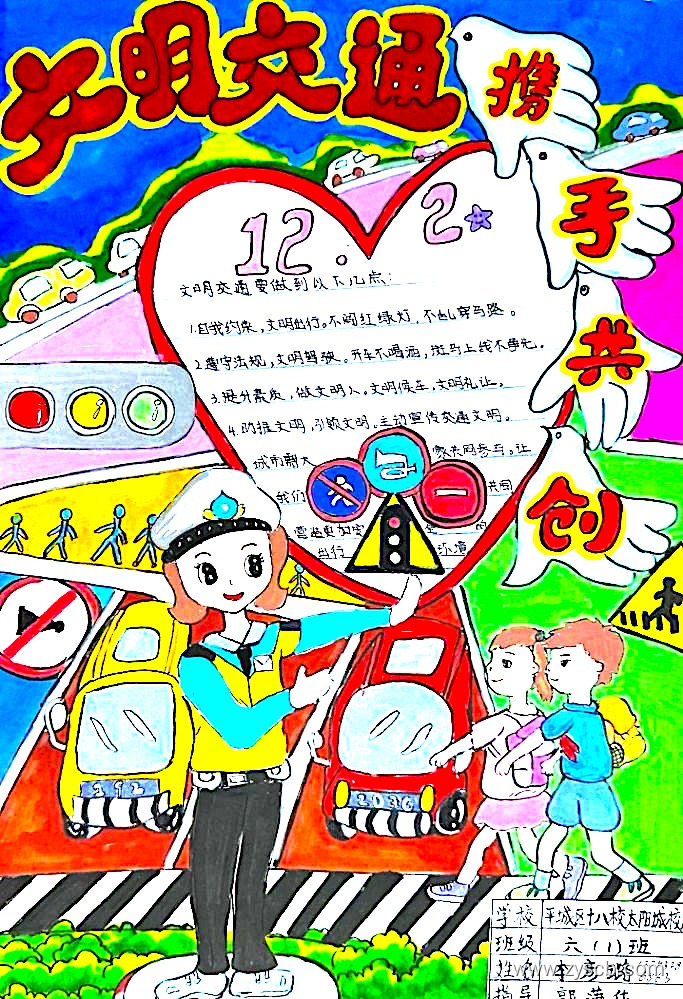 文明交通
携
手
共
创
12.2
文明交通要做到以下几点:
1.自我约束,文明出行。不闯红绿灯,不乱穿马路。
2.遵守法规,文明驾驶。开车不喝酒,斑马上线不争先。
3.提升素质,做文明人。文明候车,文明礼让。
4.助推文明,引领文明。主动宣传交通文明。
城市靠大家共同参与。让
我们 共同
营造更加安全 的
出行 环境
2036
学校 平城区十八校太阳城校
班级 六(1)班
姓名 李彦
指导 郭